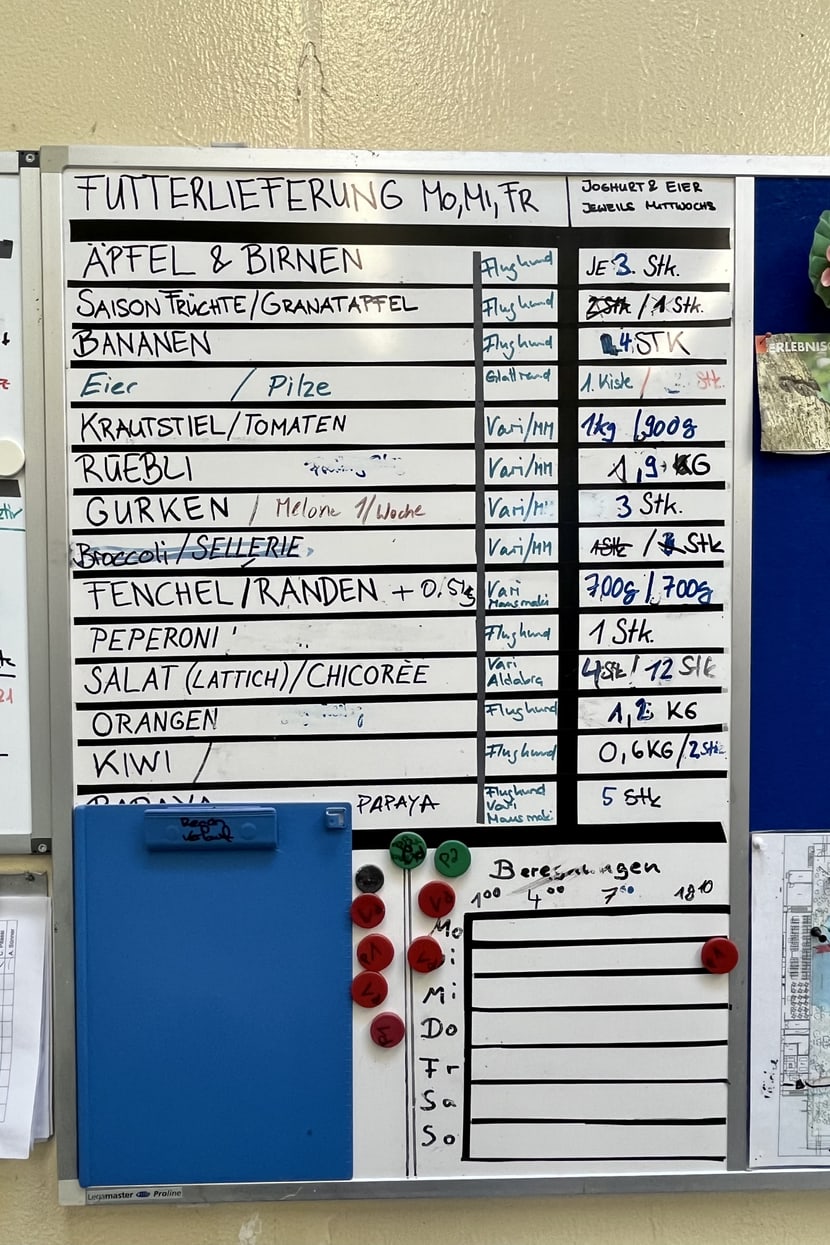 FUTTERLIEFERUNG Mo, Mi, FR
JOGHURT & EIER
JEWEILS MITTWOCHS
ÄPFEL & BIRNEN Flughund JE 3. Stk.
SAISON FRÜCHTE/GRANATAPFEL Flughund 2 Stk / 1 Stk.
BANANEN Flughund 4 STK
Eier / Pilze Glattrand 1 Kiste / Stk.
KRAUTSTIEL/TOMATEN Vari/MM 1kg / 900g
RÜEBLI Vari/MM 1,9 KG
GURKEN / Melone 1/Woche Vari/M 3 Stk.
Broccoli/SELLERIE Vari/MM 1 Stk / Stk
FENCHEL/RANDEN + 0.5 Vari 700g / 700g
Mausmaki
PEPERONI Flughund 1 Stk.
SALAT (LATTICH)/CHICORÈE Vari 4 Stk / 12 Stk
Aldabra
ORANGEN Flughund 1,2 KG
KIWI / Flughund 0,6KG/2 Stk
PAPAYA PAPAYA Flughund 5 Stk
Vari
Mausmaki
Regen
Verlauf
P2
Beregnungen
1⁰⁰ 4⁰⁰ 7⁰⁰ 18¹⁰
Mo
Di
Mi
Do
Fr
Sa
So
Legamaster Proline
ERLEBNIS